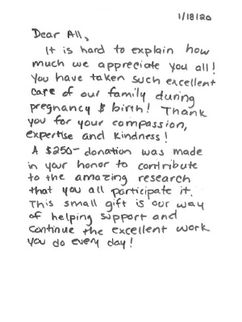 1/18/20
Dear All,
It is hard to explain how
much we appreciate you all!
You have taken such excellent
care of our family during
pregnancy & birth! Thank
you for your compassion,
expertise and kindness!
A $250- donation was made
in your honor to contribute
to the amazing research
that you all participate it.
This small gift is our way
of helping support and
continue the excellent work
you do every day!